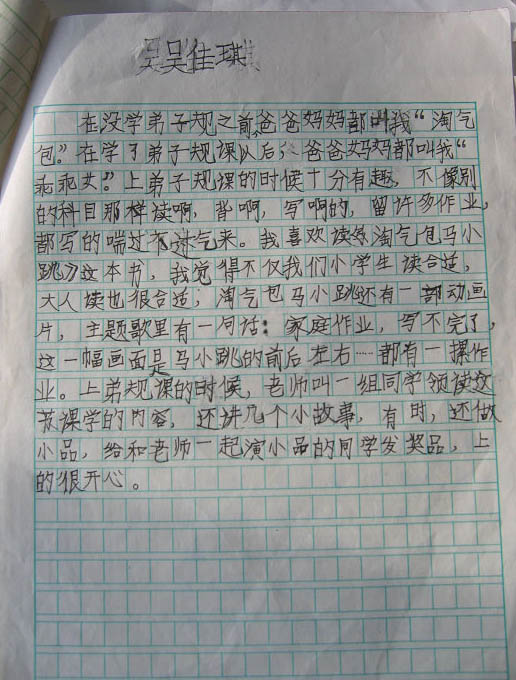 吴佳琪
在没学弟子规之前,爸爸妈妈都叫我“淘气
包”。在学了弟子规课以后;爸爸妈妈都叫我“
乖乖女”。上弟子规课的时候十分有趣,不像别
的科目那样读啊,背啊,写啊的,留许多作业,
都写的喘过不进气来。我喜欢读《淘气包马小
跳》这本书,我觉得不仅我们小学生读合适,
大人读也很合适;淘气包马小跳还有一部动画
片,主题歌里有一句话:家庭作业,写不完了,
这一幅画面是马小跳的前后左右……都有一摞作
业。上弟规课的时候,老师叫一组同学领读这
节课学的内容,还讲几个小故事,有时,还做
小品,给和老师一起演小品的同学发奖品,上
的很开心。